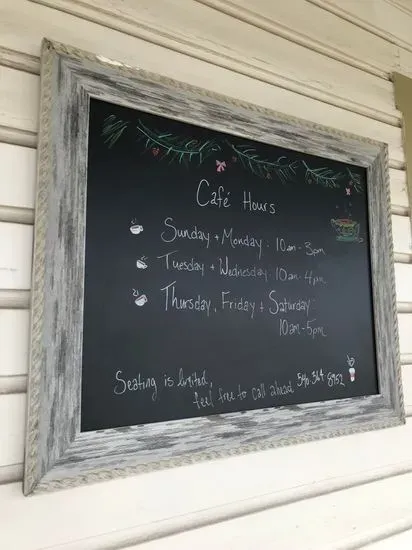 Café Hours
Sunday + Monday: 10am - 3pm
Tuesday + Wednesday: 10am - 4pm
Thursday, Friday + Saturday:
10am - 5pm
Seating is limited,
feel free to call ahead 540-364-8952